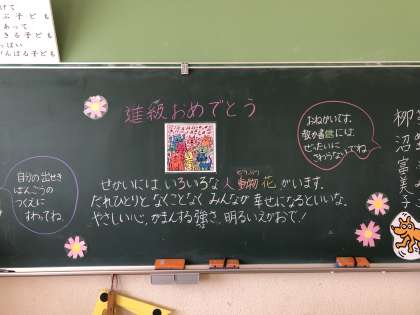 けて
ぶ子ども
あって
きる子ども
っぱい
んばる子ども
進級おめでとう
おねがいです。
教か書には、
ぜったいに
さわらないでね
自分の出せき
ばんごうの
つくえに
すわってね。
せかいにはいろいろな人動物花がいます。
どうぶつ
だれひとりとなくことなくみんなが幸せになるといいな。
やさしい心、がまんする強さ、明るいえがおで!
柳沼富美子